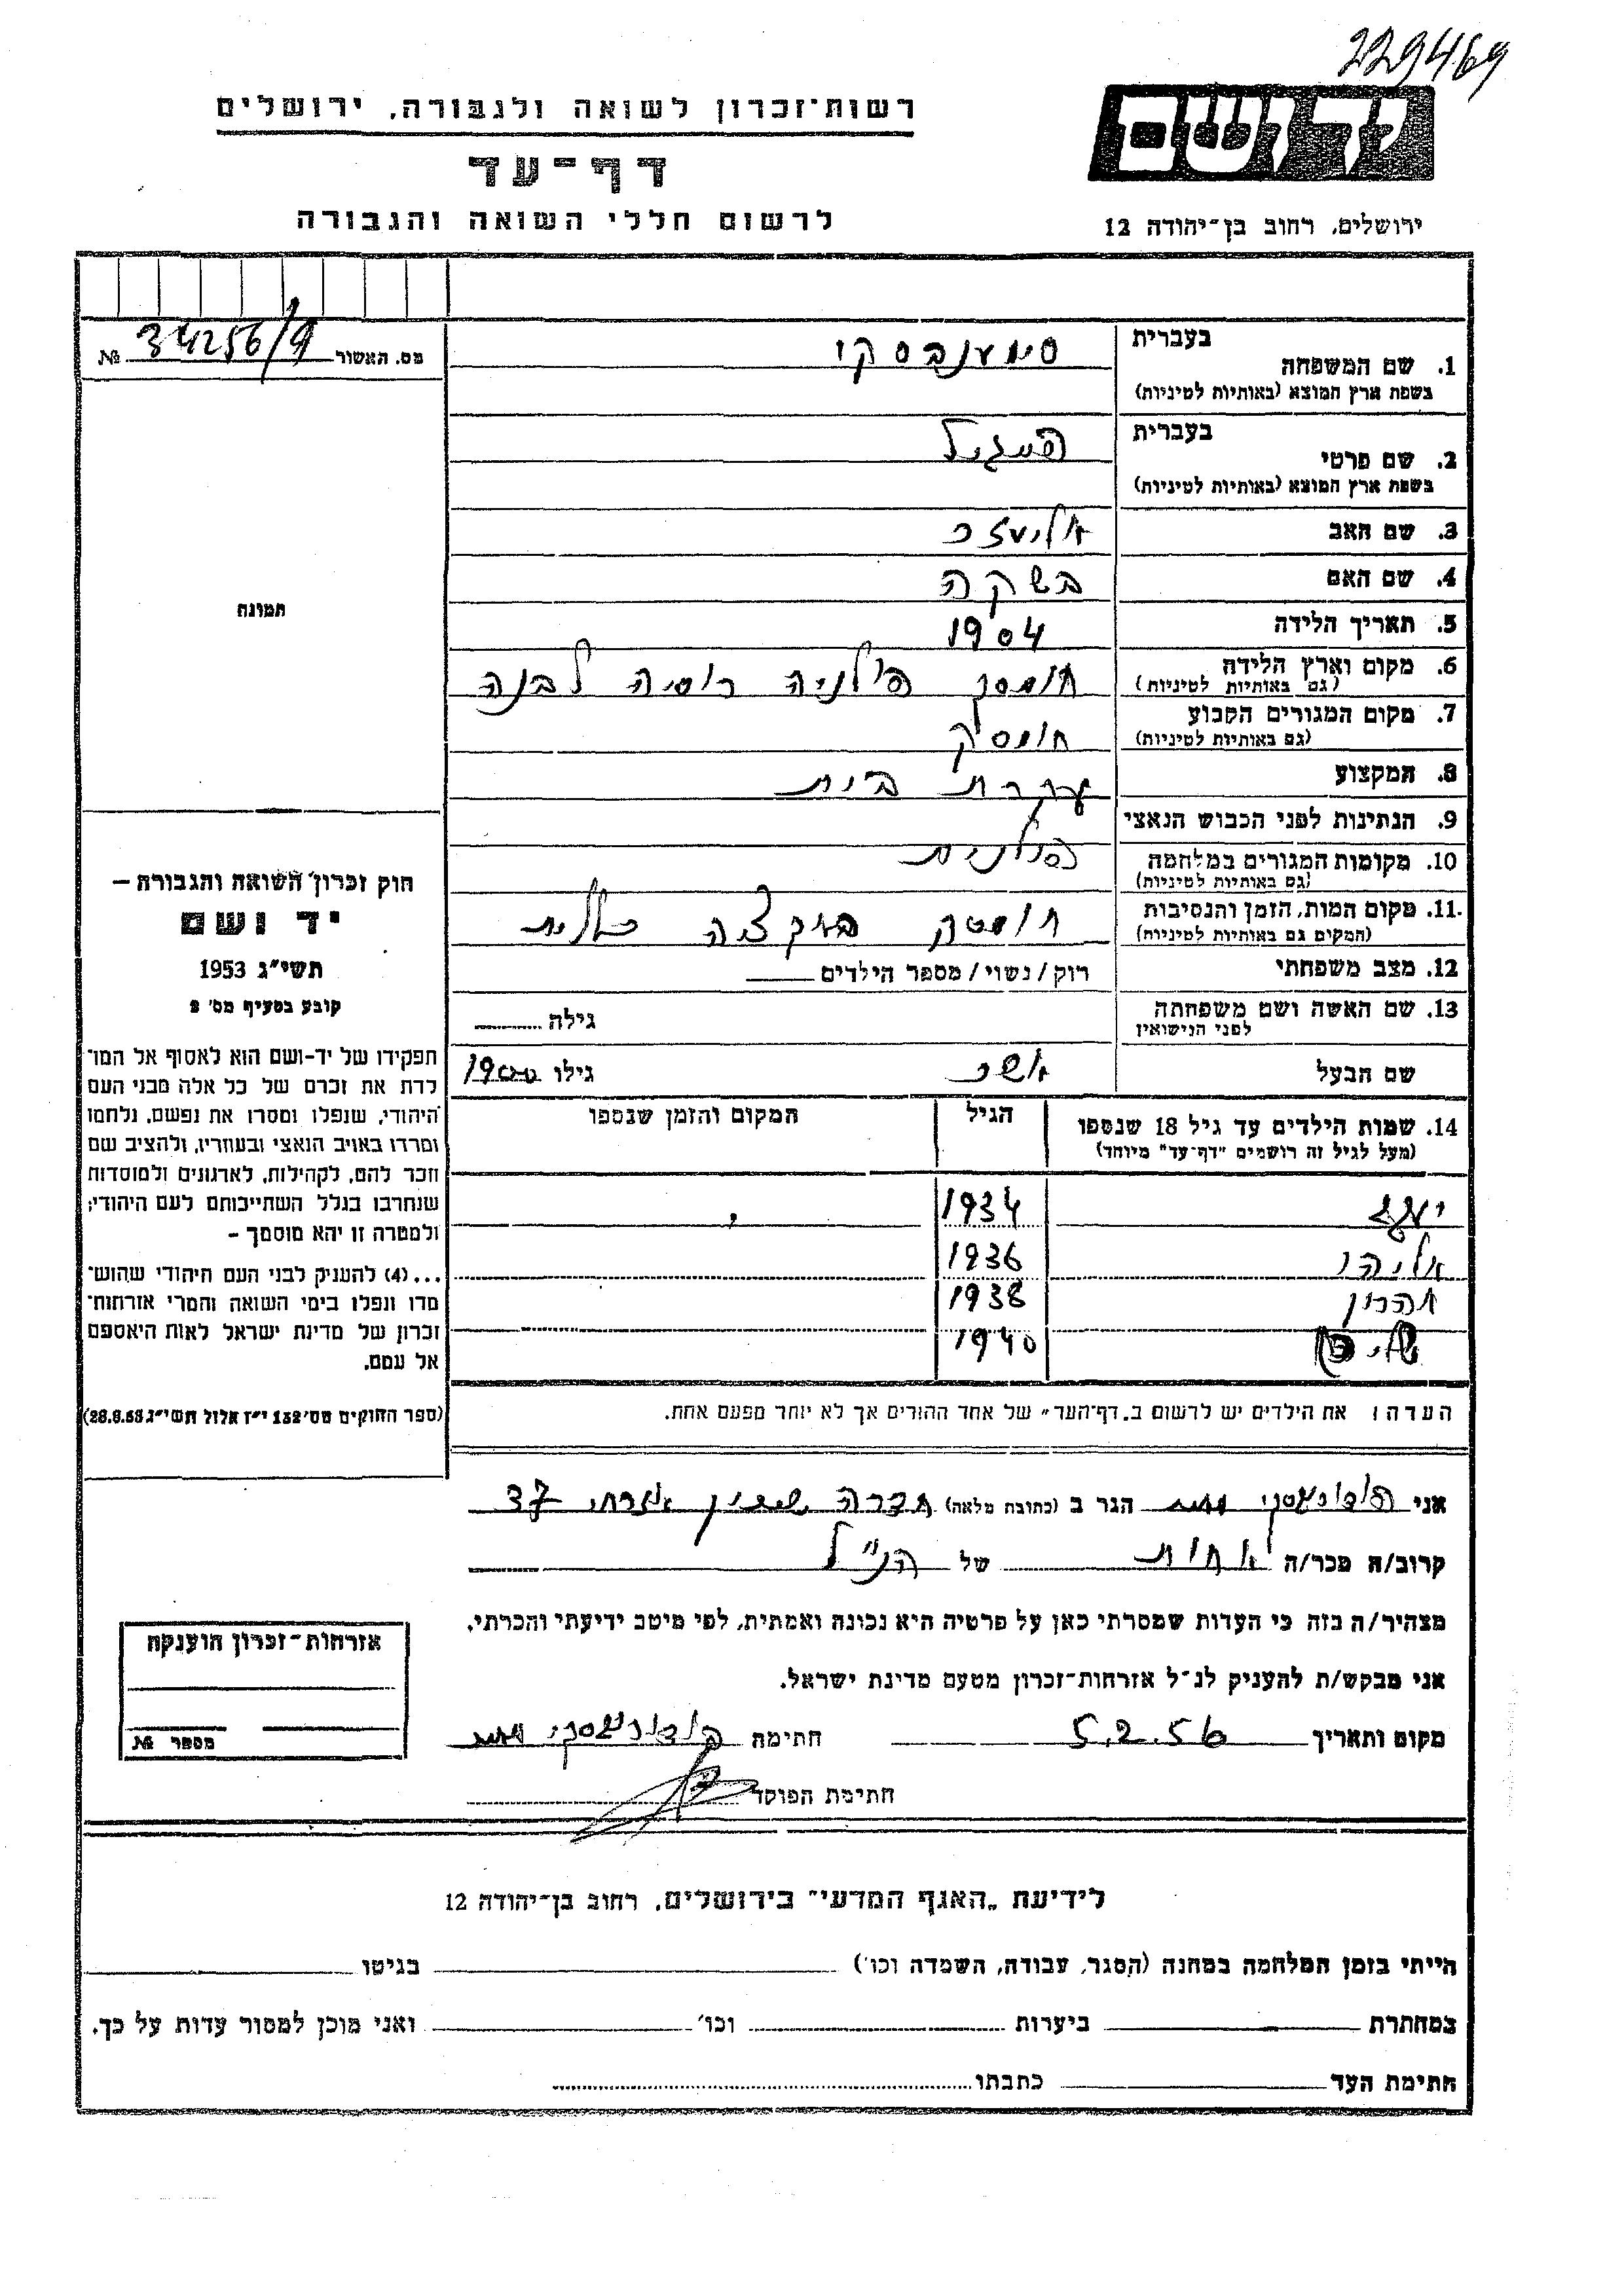 229469
רשות־זכרון לשואה ולגבורה. ירושלים
דף־עד
לרשום חללי השואה והגבורה
יד ושם
ירושלים, רחוב בן־יהודה 12
מס. האשור 34256/9 №
תמונה
חוק זכרון השואה והגבורה —
יד ושם
תשי״ג 1953
קובע בסעיף מס׳ 2
תפקידו של יד-ושם הוא לאסוף אל המו־
לדת את זכרם של כל אלה מבני העם
היהודי, שנפלו ומסרו את נפשם, נלחמו
ומרדו באויב הנאצי ובעוזריו, ולהציב שם
וזכר להם, לקהילות, לארגונים ולמוסדות
שנחרבו בגלל השתייכותם לעם היהודי;
ולמטרה זו יהא מוסמך —
...(4) להעניק לבני העם היהודי שהוש־
מדו ונפלו בימי השואה והמרי אזרחות־
זכרון של מדינת ישראל לאות היאספם
אל עמם.
(ספר החוקים מס׳ 132 י״ז אלול תשי״ג 28.8.53)
1. שם המשפחה
בעברית
בשפת ארץ המוצא (באותיות לטיניות)
2. שם פרטי
בעברית
בשפת ארץ המוצא (באותיות לטיניות)
3. שם האב אליעזר
4. שם האם בשקה
5. תאריך הלידה 1904
6. מקום וארץ הלידה חומסק פולניה רוסיה לבנה
(גם באותיות לטיניות)
7. מקום המגורים הקבוע חומסק
(גם באותיות לטיניות)
8. המקצוע עקרת בית
9. הנתינות לפני הכבוש הנאצי
פולנית
10. מקומות המגורים במלחמה
(גם באותיות לטיניות)
11. מקום המות, הזמן והנסיבות חומסק באקציה כללית
(המקום גם באותיות לטיניות)
12. מצב משפחתי רוק/נשוי/מספר הילדים
13. שם האשה ושם משפחתה גילה
לפני הנישואין
שם הבעל אשר גילו 1900
14. שמות הילדים עד גיל 18 שנספו הגיל המקום והזמן שנספו
(מעל לגיל זה רושמים "דף־עד" מיוחד)
יעקב 1934
אליהו 1936
אהרון 1938
1940
הערה: את הילדים יש לרשום ב„דף־העד״ של אחד ההורים אך לא יותר מפעם אחת.
אני הגר ב (כתובת מלאה) חדרה שמעון 37
קרוב/ה מכר/ה אחות של הנ״ל
מצהיר/ה בזה כי העדות שמסרתי כאן על פרטיה היא נכונה ואמתית, לפי מיטב ידיעתי והכרתי.
אני מבקש/ת להעניק לנ״ל אזרחות־זכרון מטעם מדינת ישראל.
מקום ותאריך 5.2.56 חתימה
חתימת הפוקד
אזרחות־זכרון הוענקה
מספר №
לידיעת „האגף המדעי״ בירושלים, רחוב בן־יהודה 12
הייתי בזמן המלחמה במחנה (הסגר, עבודה, השמדה וכו׳) בגיטו
במחתרת ביערות וכו׳ ואני מוכן למסור עדות על כך.
חתימת העד כתבתו